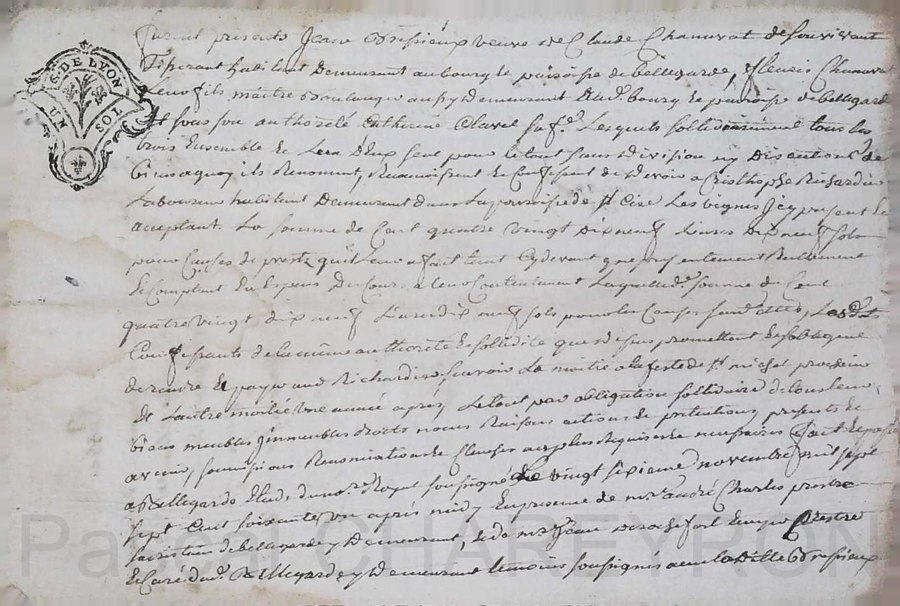 G. DE LYON
UN SOL
furent presents Jeane veuve de Claude Chanavat de son vivant
Tiperant habitant Demeurant au bourg & paroisse de bellegarde, & fleuris Chanavat
Leur fils maitre Boulanger aussy Demeurant Aud. bourg & paroisse de bellegarde
Et sous son authorité Catherine Clavel sa f.e Lesquels sollidairement tous les
trois Ensemble & L'un D'Eux seul pour le tout sans Division ny Discution de
biens a quoy ils Renoncent, Reconnoissent & Confessent de devoir a Cristhophe Richard
Laboureur habitant Demeurant dans La paroisse de St Cire Les vignes Icy present &
acceptant. La somme de Cent quatre vingt Dix neuf Livres Dix neuf sols
pour Causes de prests qu'il Leur a fait tant Cydevant que presentement Reellement
& Comptant En Especes Du Cours a leur Contentement Laquelle d. somme de Cent
quatre vingt dix neuf Livres dix neuf sols pour les Causes susdittes, Lesd.
Confessants de la même authorité & sollidité que dessus, promettent & s'obligent
de rendre & payer aud Richard scavoir La moitié a la feste de St michel prochain
Et L'autre moitié une année après Le tout par obligation sollidaire de tous leurs
biens meubles & immeubles droits noms Raisons actions & pretentions presents &
avenir, soumissions Renonciations & Clauses aux plus Requises & necessaires fait & passé
a Bellegarde Etude du no.re Royal soussigné Le vingt sixieme novembre mil sept
sept Cent soixante un après midy En presence de m.re andré Charles prestre
de bellegarde y Demeurant, & de m.re Jean de rochefort Prestre
& Curé du. Bellegarde y Demeurant temoins soussignés avec la ditte
CHAREYRON